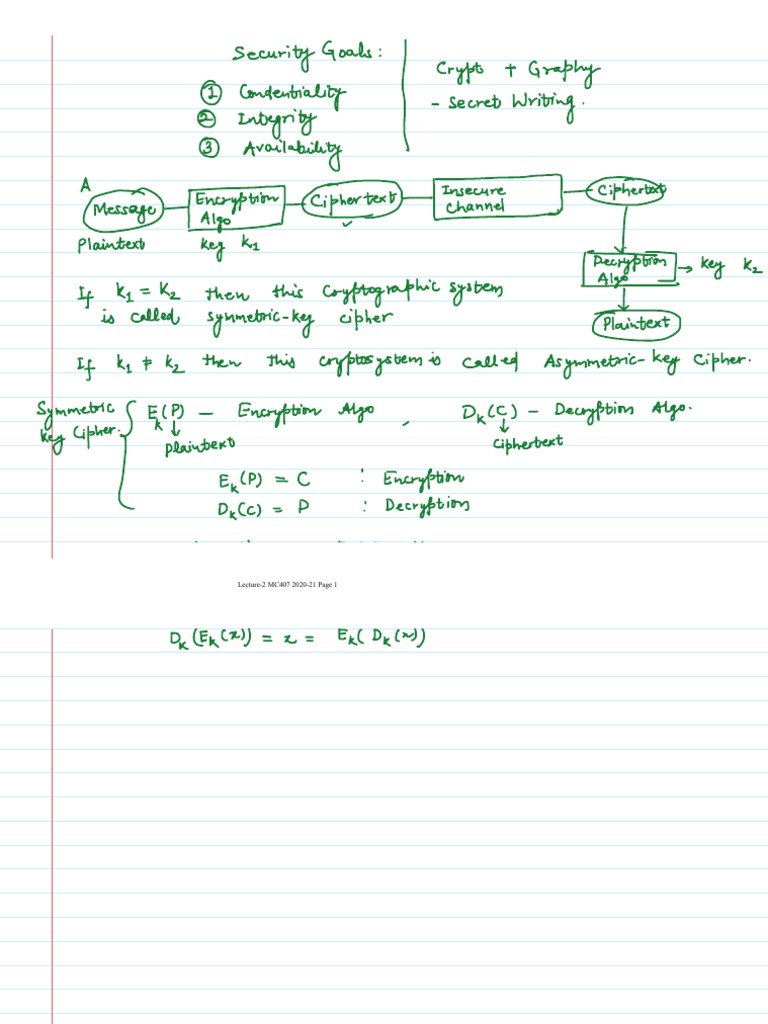 Security Goals:
① Condentiality
② Integrity
③ Availability
Crypt + Graphy
- Secret Writing.
A
Message
Encryption
Algo
Ciphertext
Insecure
Channel
Ciphertext
Plaintext
key k₁
Decryption
Algo
→ key k₂
Plaintext
If k₁ = k₂ then this Cryptographic system
is called symmetric-key cipher
If k₁ ≠ k₂ then this cryptosystem is called Asymmetric-key Cipher.
Symmetric
key Cipher.
E_k(P) — Encryption Algo ,
↓
Plaintext
D_k(C) — Decryption Algo.
↓
Ciphertext
E_k(P) = C : Encryption
D_k(C) = P : Decryption
Lecture-2 MC407 2020-21 Page 1
D_k(E_k(x)) = x = E_k(D_k(x))